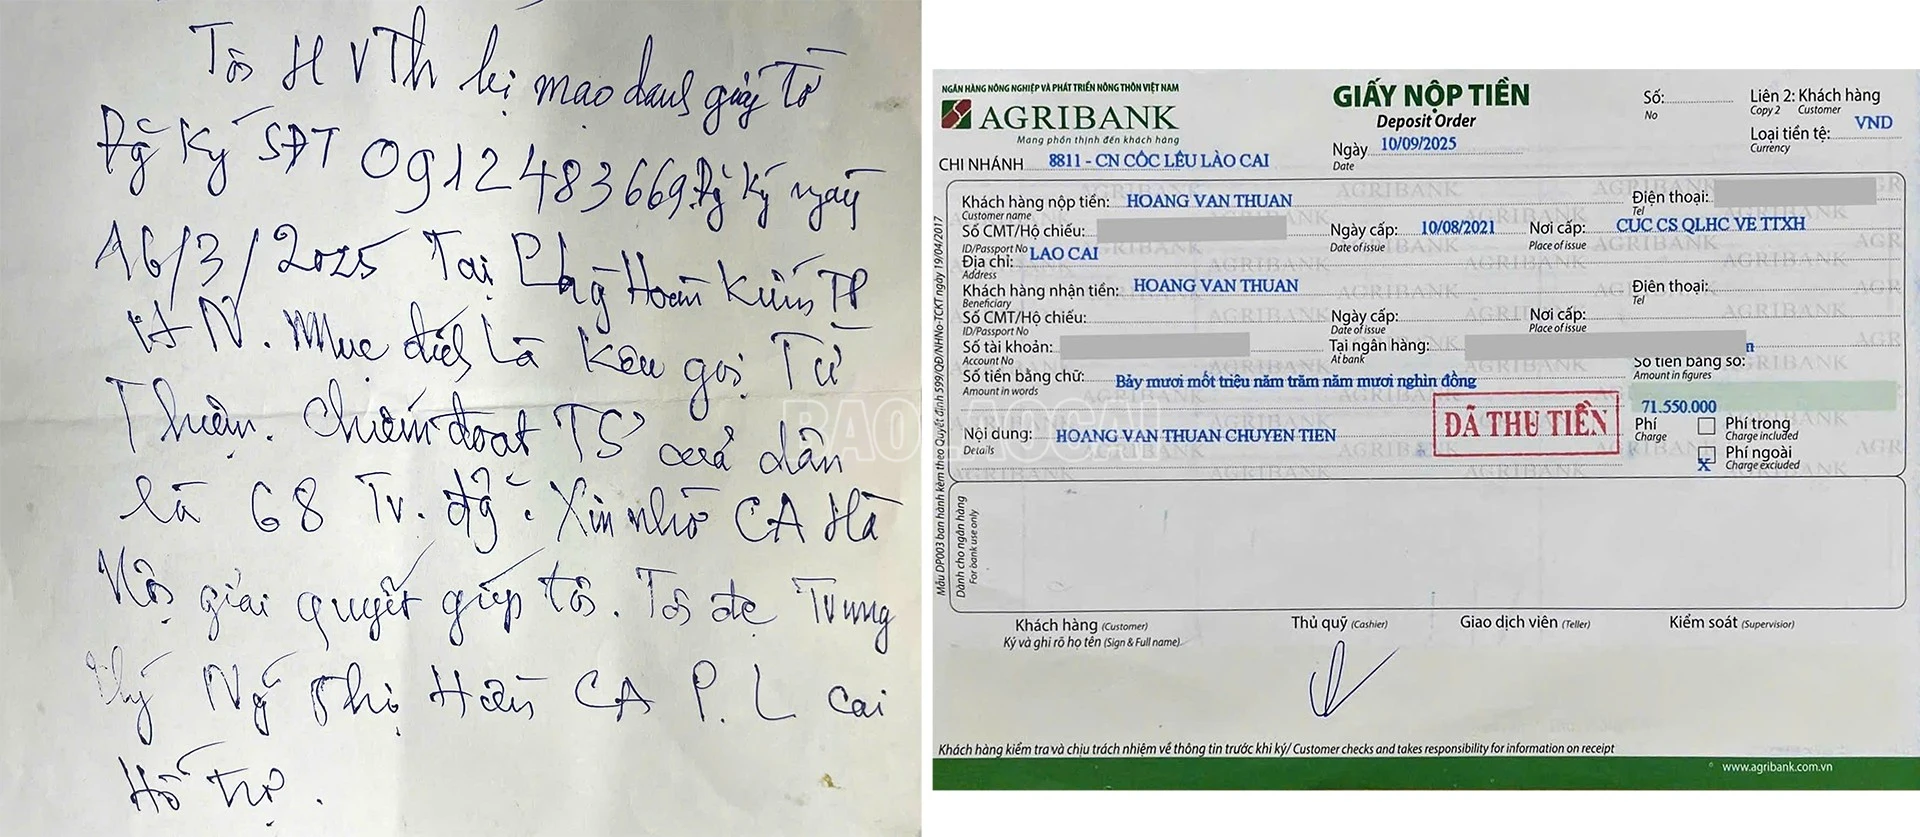 Tôi H VTh bị mạo danh giấy tờ
Đg Ký SĐT 0912483669. Đg Ký ngày
16/3/2025 Tại Phg Hoàn Kiếm TP
HN. Mục đích Là Kêu gọi Từ
Thiện. Chiếm đoạt TS của dân
là 68 Tr. đg. Xin nhờ CA Hà
Nội giải quyết giúp tôi. Tôi đc Trung
Ng Thị Hiền CA P. L Cai
Hỗ trợ.
BAO LAOCAI
NGÂN HÀNG NÔNG NGHIỆP VÀ PHÁT TRIỂN NÔNG THÔN VIỆT NAM
AGRIBANK
Mang phồn thịnh đến khách hàng
CHI NHÁNH 8811 - CN CỐC LẾU LÀO CAI
GIẤY NỘP TIỀN
Deposit Order
Ngày 10/09/2025
Date
Số:
No
Liên 2: Khách hàng
Copy 2 Customer
Loại tiền tệ: VND
Currency
Khách hàng nộp tiền: HOANG VAN THUAN
Customer name
Điện thoại:
Tel
Số CMT/Hộ chiếu:
ID/Passport No
Ngày cấp: 10/08/2021
Date of issue
Nơi cấp: CUC CS QLHC VE TTXH
Place of issue
Địa chỉ: LAO CAI
Address
Khách hàng nhận tiền: HOANG VAN THUAN
Beneficiary
Điện thoại:
Tel
Số CMT/Hộ chiếu:
ID/Passport No
Ngày cấp:
Date of issue
Nơi cấp:
Place of issue
Số tài khoản:
Account No
Tại ngân hàng:
At bank
Số tiền bằng chữ: Bảy mươi mốt triệu năm trăm năm mươi nghìn đồng
Amount in words
Số tiền bằng số:
Amount in figures
71.550.000
Nội dung: HOANG VAN THUAN CHUYEN TIEN
Details
ĐÃ THU TIỀN
Phí
Charge
Phí trong
Charge included
Phí ngoài
X Charge excluded
Mẫu DP003 ban hành kèm theo Quyết định 599/QĐ/NHNo-TCKT ngày 19/04/2017
Dành cho ngân hàng
For bank use only
Khách hàng (Customer)
Ký và ghi rõ họ tên (Sign & Full name)
Thủ quỹ (Cashier)
Giao dịch viên (Teller)
Kiểm soát (Supervisor)
Khách hàng kiểm tra và chịu trách nhiệm về thông tin trước khi ký/ Customer checks and takes responsibility for information on receipt
www.agribank.com.vn